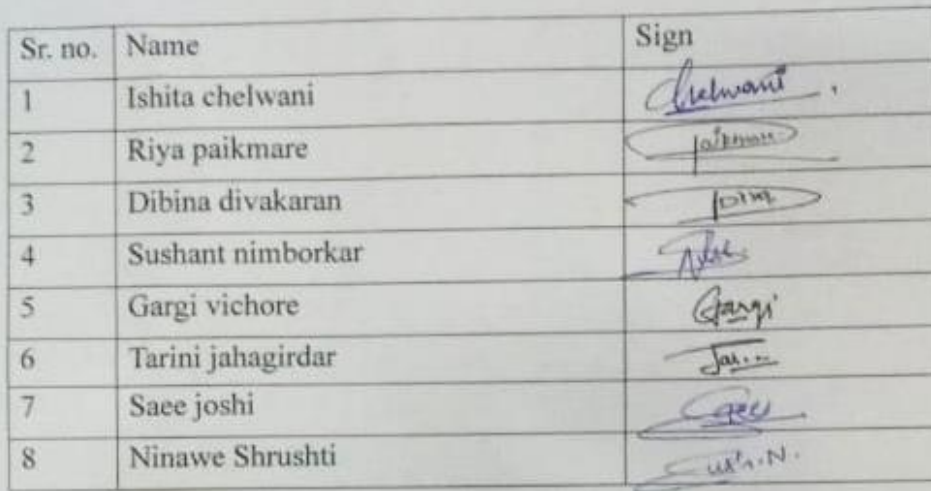 Sr. no. Name Sign
1 Ishita chelwani Chelwani
2 Riya paikmare
3 Dibina divakaran
4 Sushant nimborkar
5 Gargi vichore Gargi
6 Tarini jahagirdar
7 Saee joshi Saee
8 Ninawe Shrushti